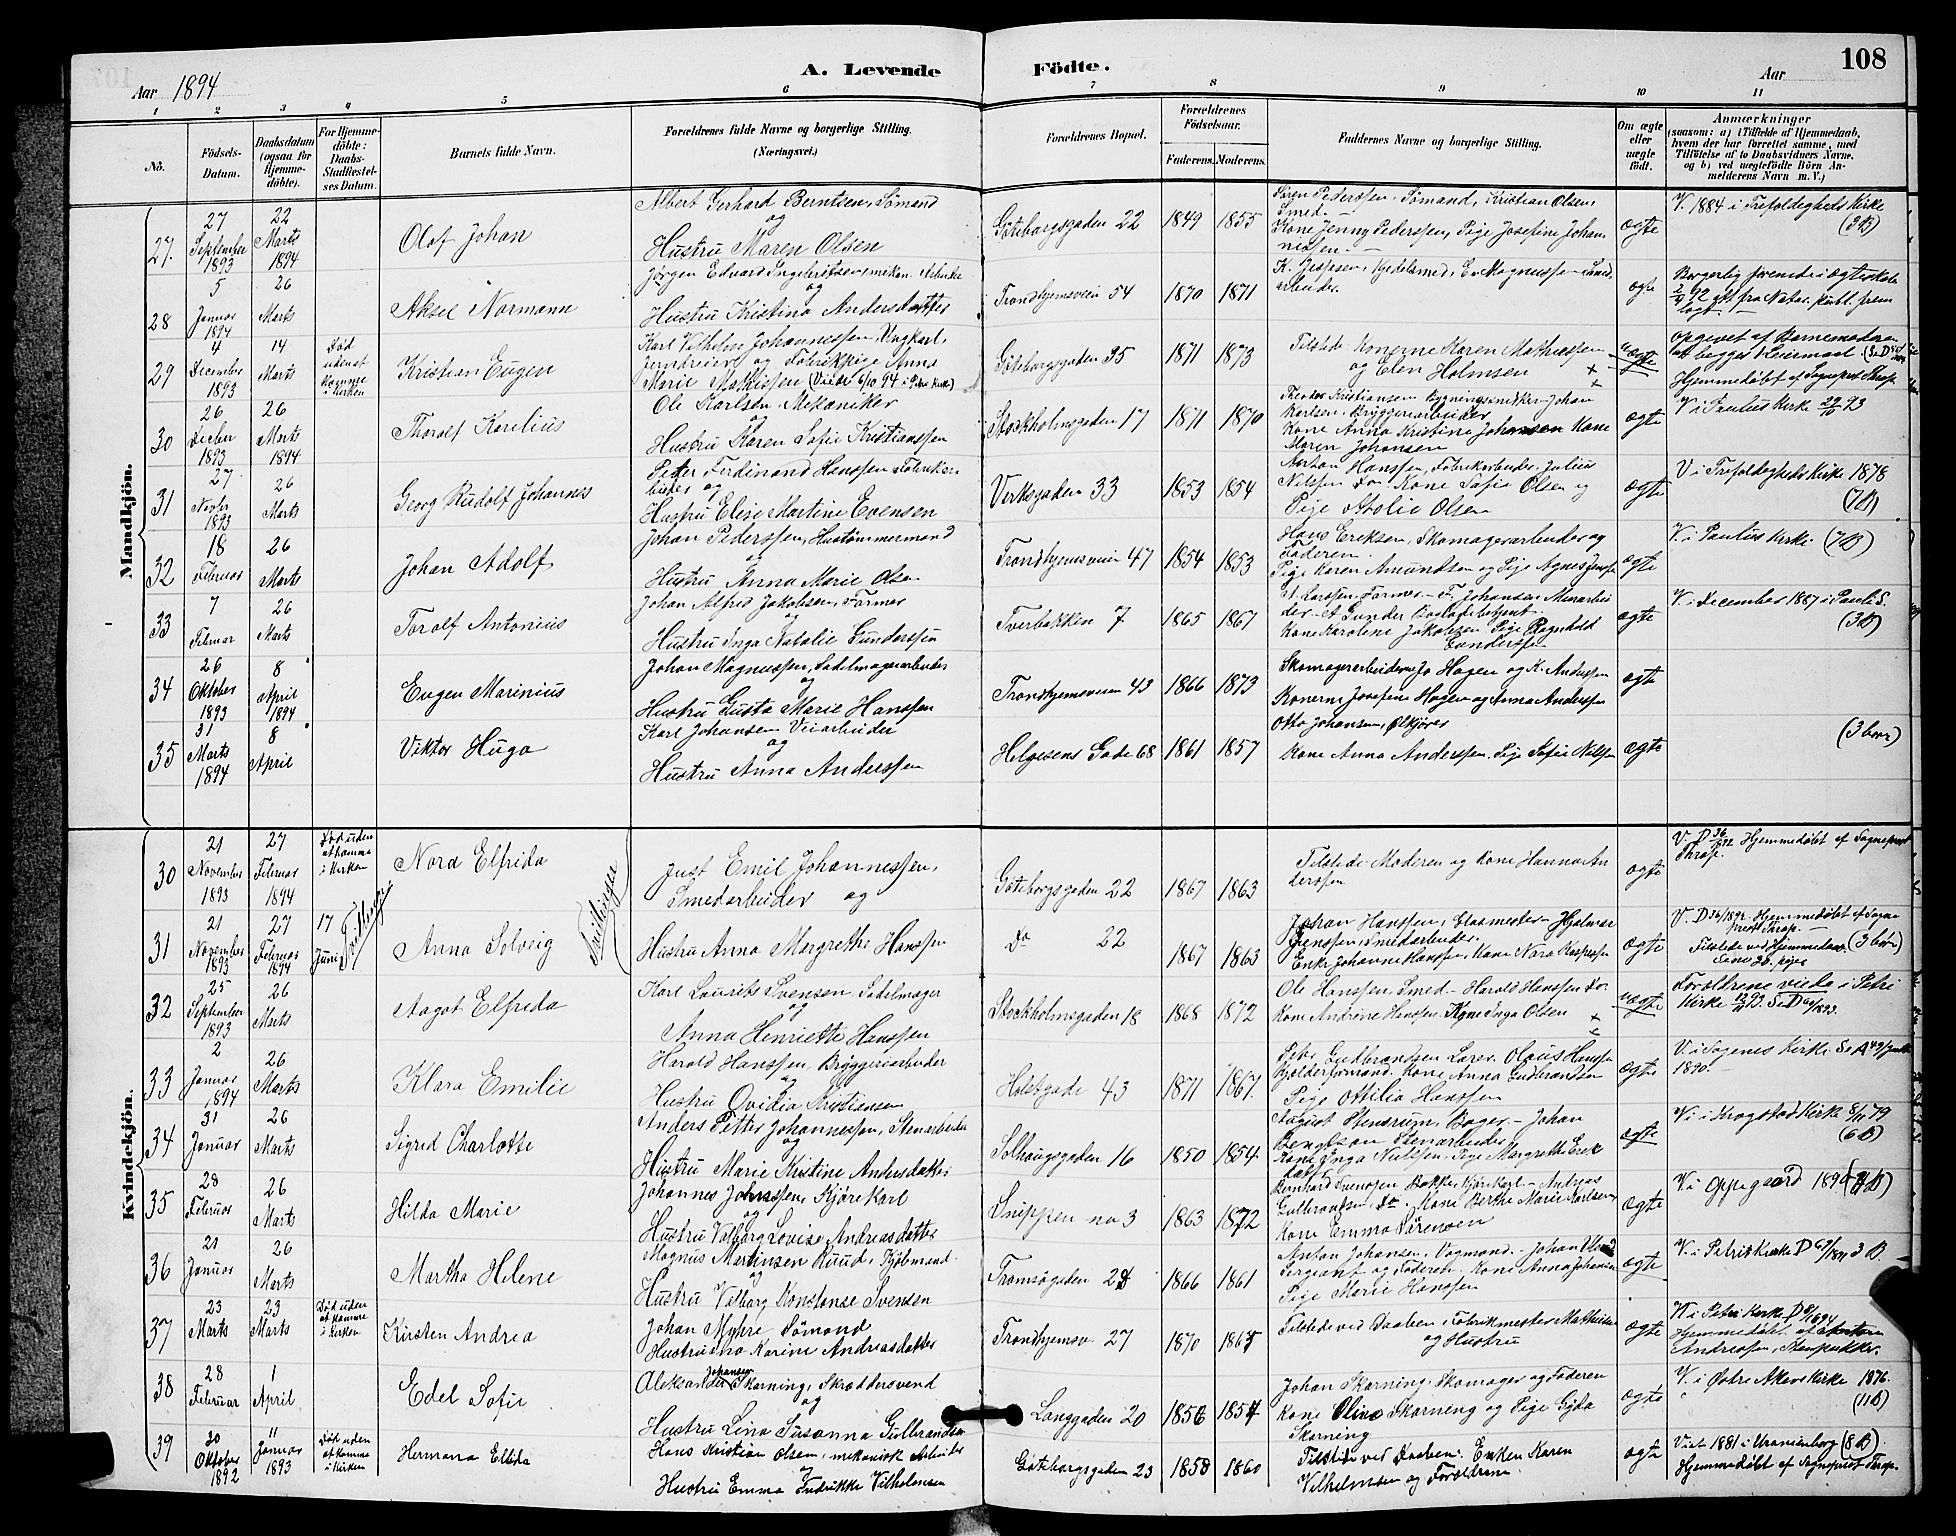 108
Aar 1894
A. Levende Födte.
Aar
1 2 3 4 5 6 7 8 9 10 11
No.
Födsels-Datum.
Daabsdatum (ogsaa for Hjemme-döbte).
For Hjemme-döbte: Daabs-Stadfæstel-ses Datum.
Barnets fulde Navn.
Forældrenes fulde Navne og borgerlige Stilling.
(Næringsvei.)
Forældrenes Bopæl.
Forældrenes Födselsaar.
Faderens. Moderens.
Faddernes Navne og borgerlige Stilling.
Om ægte eller uægte födt.
Anmærkninger
(saasom: a) i Tilfælde af Hjemmedaab, hvem der har forrettet samme, med Tilföielse af to Daabsvidners Navne, og b) ved uægtefödte Börn Anmelderens Navn m. V.)
Mandkjön.
27. 27 September 1893 22 Marts 1894 Olof Johan
Albert Gerhard Berntsen, Sömand
og
Hustru Maren Olsen
Göteborgsgaden 22 1849 1855
Sören Pederssen, Sömand, Kristian Olsen,
Smed.
Kone Jenny Pederssen, Pige Josefine Johan
nessen
ægte
V. 1884 i Trefoldigheds Kirke
(3B)
28 5 Januar 1894 26 Marts Aksel Normann
Jörgen Edvard Ingebretsen, mekan. Arbeider
og
Hustru Kristina Andersdatter
Trondhjemsveien 54 1870 1871
K. Jespesen, Kjedelsmed, E. Magnussen Smed
arbeider.
ægte
29 4 December 1893 14 Marts Död uden at komme i Kirken Kristian Eugen
Karl Vilhelm Johannessen, Ungkarl,
Jerndreier og Fabrikpige Anna
Marie Mathissen (Viede 6/10 94 i Petri Kirke)
Göteborgsgaden 35 1871 1873
Tilstede Konerne Karen Mathissen
og Elen Holmsen
uægte
opgivet af Barnemoderen
Hjemmedöbt af Sognepræst Thrap.
30 26 December 1893 26 Marts 1894 Thorolf Karelius
Ole Karlsen, Mekaniker
Hustru Karen Sofie Kristianssen
Stockholmsgaden 17 1871 1870
Theodor Kristiansen Bygningssnekker Johan
Karlsen, Bryggeriarbeider
Kone Anna Kristine Johansen Kone
Maren Johansen
ægte
V i Paulus Kirke 29/10 93
31 27 Novber 1893 26 Marts Georg Rudolf Johannes
Peter Ferdinand Hanssen Fabrikar
beider og
Hustru Elise Martine Evensen
Verksgaden 33 1853 1854
Anton Hanssen, Fabrikarbeider, Julius
Nilssen Do Kone Sofie Olsen og
Pige Atolie Olsen
ægte
V i Trefoldigheds Kirke 1878
(7B)
32 18 Februar 26 Marts Johan Adolf
Johan Pederssen, Hustömmermand
og
Hustru Anna Marie Olsen
Trondhjemsveien 47 1854 1853
Hans Eriksen, Skomagerarbeider og
Faderen.
Pige Karen Amundsen og Pige Agnes Jenssen
ægte
V. i Paulus Kirke. (7B)
33 7 Februar 26 Marts Torolf Antonius
Johan Alfred Jakobsen, Former
og
Hustru Inga Natalie Gunderssen
Tverbakken 7 1865 1867
Larssen, Former - F. Johansen Murarbei
der
Kone Karoline Jakobsen Pige Ragnhild
Gunderssen
ægte
V. i December 1887 i Pauls.
(3B)
34 26 Oktober 1893 8 April 1894 Eugen Marinius
Johan Magnussen, Sadelmagerarbeider
og
Hustru Gusta Marie Hanssen
Trondhjemsveien 43 1866 1873
Skomagerarbeiderne Jo Hagen og K. Anderssen
Konerne Josefine Hagen og Anna Anderssen
ægte
35 31 Marts 1894 8 April Viktor Hugo
Karl Johansen Veiarbeider
og
Hustru Anna Anderssen
Helgesens Gade 68 1861 1857
Otto Johansen, Ölkjörer
Kone Anna Anderssen. Pige Sofie Nilssen
ægte
(3 börn)
Kvindekjön.
30 21 November 1893 27 Februar 1894 Död uden at komme i Kirken Nora Elfrida
Just Emil Johannessen,
Smedarbeider og
Göteborgsgaden 22 1867 1863
Tilstede Moderen og Kone Hanna An
derssen
ægte
V. D 36/1892 Hjemmedöbt af Sognepræst
Thrap.
31 21 November 1893 27 Februar 1894 17 Juni Anna Solveig
Tvillinger
Tvillinger
Hustru Anna Margrethe Hanssen
Do 22 1867 1863
Johan Hanssen, Glasmester - Hjalmar
Jenssen, Smedarbeider.
Enke Johanne Hanssen, Kone Nora Kasperssen
ægte
V. D 36/1892. Hjemmedöbt af Sogne
præst Thrap. -
Tilstede ved Hjemmedaab. (3 börn)
32 25 September 1893 26 Marts Aagot Elfrida
Karl Laurits Svensen, Sadelmager
og
Anna Henriette Hanssen
Stockholmsgaden 18 1868 1872
Ole Hanssen, Smed - Harold Hanssen Do.
Kone Andrine Hanssen. Kone Inga Olsen
uægte
Forældrene viede i Petri
Kirke
33 2 Januar 1894 26 Marts Klara Emilie
Harald Hanssen, Bryggeriarbeider
og
Hustru Ovidia Kristiansen
Holstgade 43 1871 1867.
Peter Gudbrandsen Lærer. Olaus Hanssen
Kjælderformand. Kone Anna Gudbrandsen
Pige Ottilia Hanssen
ægte
V. i Sagenes Kirke
1890.
34 31 Januar 26 Marts Sigrid Charlotte
Anders Petter Johannessen, Stenarbeider
og
Hustru Marie Kristine Andersdatter
Solhaugsgaden 16 1850 1854
August Stenersen, Bager. - Johan
Bengtson Stenarbeider
Kone Inga Nielsen. Pige Margrethe Erik
datter
ægte
V. i Kragstad Kirke 8/11 79
(6B)
35 28 Februar 26 Marts Hilda Marie
Johannes Johnssen, Kjörekarl
og
Hustru Valborg Lovise Andreasdatter
Snippen no 3 1863 1872
Bernhard Svenssen Bakke, Kjörekarl - Andreas
Gulbrandsen, Do. Kone Berthe Marie Karlsen,
Kone Emma Sörensen
ægte
V. i Oppegaard 1894
36 21 Januar 26 Marts Martha Helene
Magnus Martinsen Ruud, Kjöbmand.
og
Hustru Valborg Konstanse Svensen
Tromsögaden 24 1866 1861
Anton Johansen, Vognmand. - Johan
Sergeant og Faderen. Kone Anna Johansen
Pige Marie Hanssen
ægte
V. i Petri Kirke
37 23 Marts 23 Marts Död uden at komme i Kirken Kirsten Andrea
Johan Myhre Sömand
Hustru Ina Karine Andreasdatter
Trondhjemsv. 27 1870 1865
Tilstede ved Daaben: Fabrikmester Mathisen
og Hustru
ægte
V. i Petri Kirke
Hjemmedöbt af
Andreassen, Stenpukker.
38 28 Februar 1 April Edel Sofie
Aleksander Johansen Skarning, Skræddersvend
og
Hustru Lina Susanna Gulbrandsen
Langgaden 20 1856 1857
Johan Skarning, Skomager og Faderen
Kone Oline Skarning og Pige Gyda
Skarning
ægte
V. i Östre Akers Kirke 1876.
(11B)
39 30 Oktober 1892 11 Januar 1893 Död uden at komme i Kirken Hermana Elida
Hans Kristian Olsen, mekanisk Arbeider
og
Hustru Emma Fredrikke Vilhelmsen
Göteborgsgaden 23 1858 1860
Tilstede ved Daaben: Enken Karen
Vilhelmsen og Forældrene.
ægte
Viet 1881 i Uranienborg (8B).
Hjemmedöbt af Sognepræst Thrap.